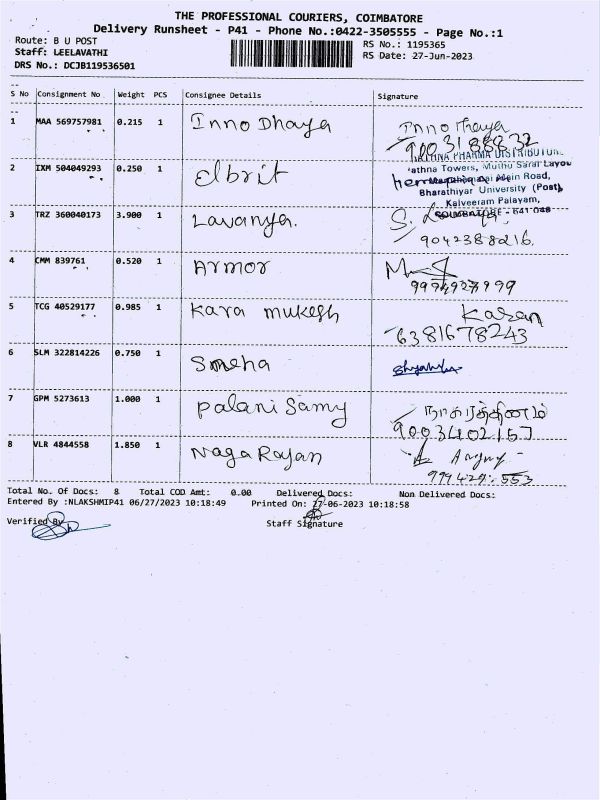 THE PROFESSIONAL COURIERS, COIMBATORE
Delivery Runsheet - P41 - Phone No.:0422-3505555 - Page No.:1
Route: B U POST
Staff: LEELAVATHI
DRS No.: DCJB119536501
RS No.: 1195365
RS Date: 27-Jun-2023
S No Consignment No Weight PCS Consignee Details Signature
1 MAA 569757981 0.215 1 Inno Dhaya Inno Dhaya
9003188832
PHARMA DISTRIBUTOR
2 IXM 504049293 0.250 1 Elbrit
Towers, Muthu Sarai Layou
Main Road,
Bharathiyar University (Post),
Kalveeram Palayam,
COIMBATORE - 641 046
3 TRZ 360040173 3.900 1 Lavanya. S.
9042388216.
4 CMM 839761 0.520 1 Armor
5 TCG 40529177 0.985 1 Kara mukesh Karan
6381678243
6 SLM 322814226 0.750 1 Smeha
7 GPM 5273613 1.000 1 Palani Samy நாகரத்தினம்
9003402157
8 VLR 4844558 1.850 1 Naga Rajan
Total No. Of Docs: 8 Total COD Amt: 0.00 Delivered Docs: Non Delivered Docs:
Entered By :NLAKSHMIP41 06/27/2023 10:18:49 Printed On: 27-06-2023 10:18:58
Verified By
Staff Signature